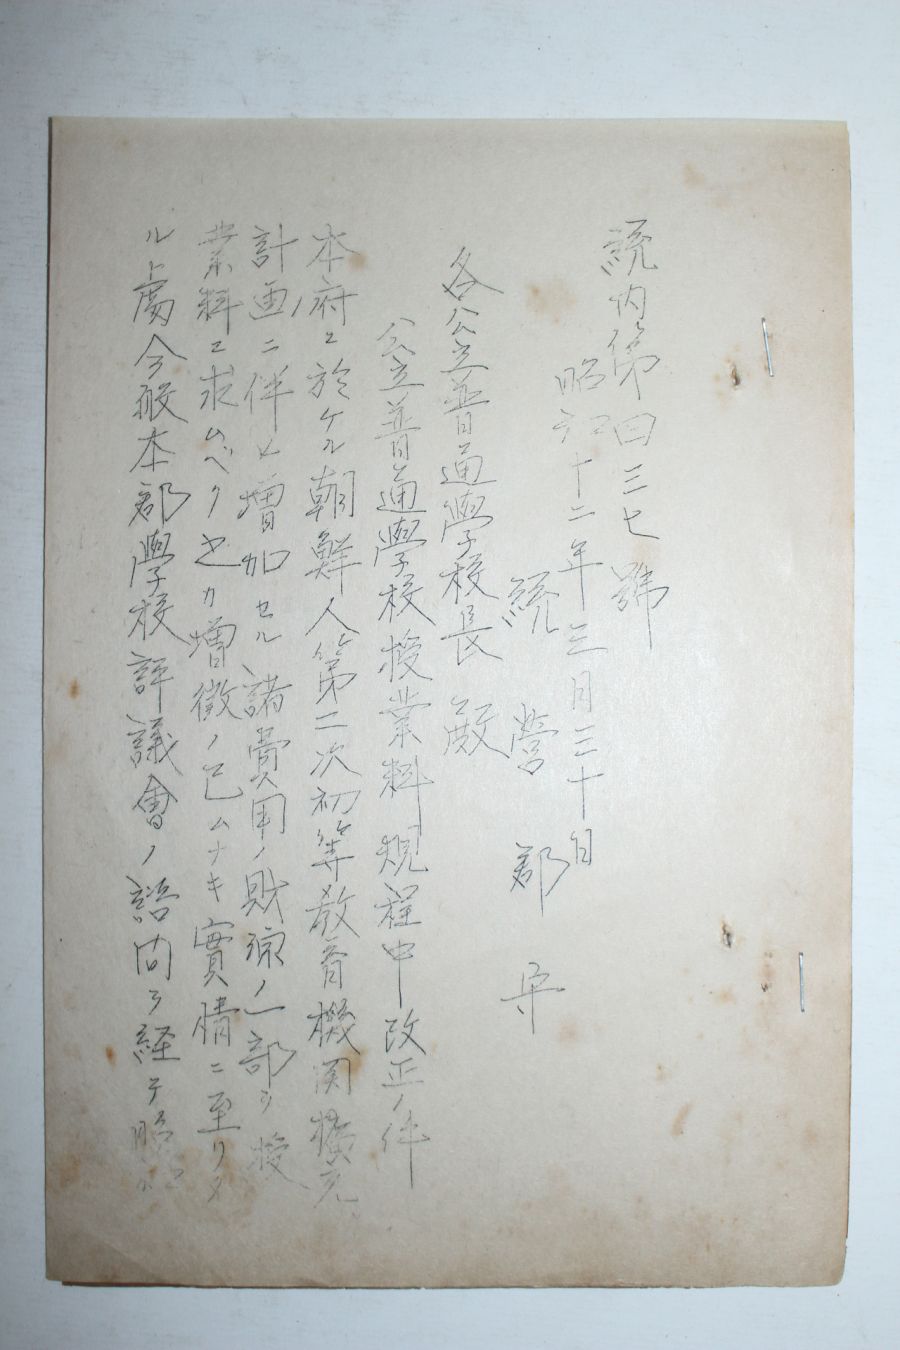 統内第四三七號
昭和十二年三月三十日
統營郡守
各公立普通學校長 殿
公立普通學校授業料規程中改正ノ件
本府ニ於ケル朝鮮人第二次初等教育機関擴充
計画ニ伴ヒ増加セル諸費用ノ財源ノ一部ヲ授
業料ニ求ムベク之カ増徴ノ已ムナキ實情ニ至リタ
ル処今般本郡學校評議會ノ諮問ヲ経テ昭和